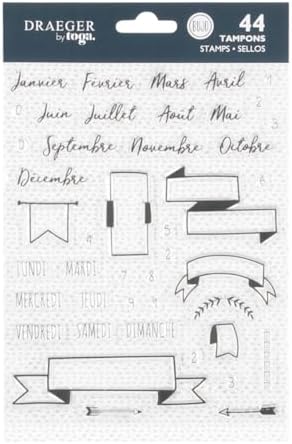 DRAEGER
by toga.
BUJO
44
TAMPONS
STAMPS • SELLOS
Janvier Février Mars Avril
Juin Juillet Août Mai
Septembre Novembre Octobre
Décembre
LUNDI MARDI
MERCREDI JEUDI
VENDREDI SAMEDI DIMANCHE